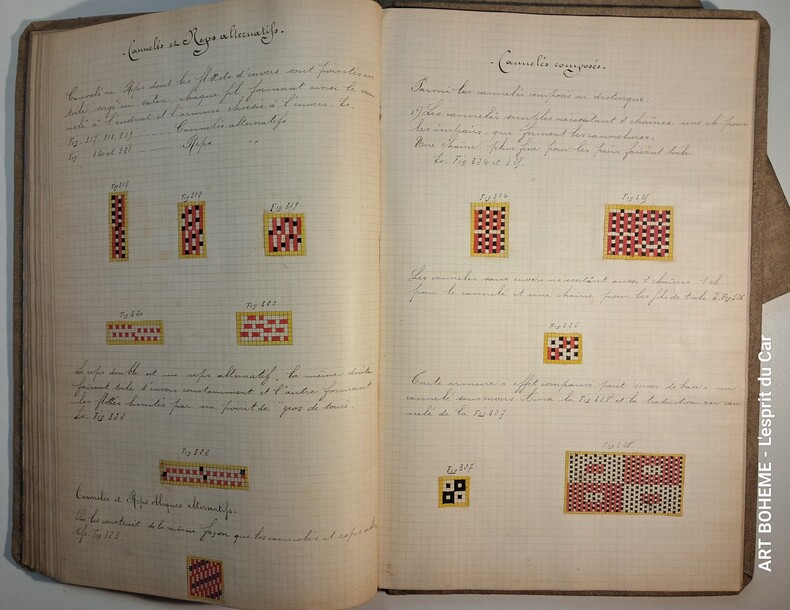 Cannelés et Reps alternatifs.
Cannelé ou Reps dont les flottés d'envers sont pointés en
toile, sergé ou satin, chaque fil formant ainsi le can
nelé à l'endroit et l'armure choisie à l'envers. Ex.
Fig. 317, 318, 319 Cannelés alternatifs
Fig. 320 et 321 Reps "
Fig 317
Fig 318
Fig 319
Fig 320
Fig 321
Le reps double est un reps alternatif, la même duite
faisant toile d'envers constamment et l'autre formant
les flottés limités par un point de "gros de tours.
Ex. Fig. 322
Fig 322
Cannelés et Reps obliques alternatifs.
On les construit de la même façon que les cannelés et reps
Fig 323
Cannelés composés.
Parmi les cannelés composés on distingue:
1°) Les cannelés simples nécessitant 2 chaînes, une ch. pour
les impairs, qui forment les cannelures.
Une chaîne plus fine pour les pairs faisant toile
Ex. Fig 324 et 325.
Fig 324
Fig 325
Les cannelés sans envers nécessitant aussi 2 chaînes 1 ch
pour le cannelé et une chaîne pour les fils de toile Ex. Fig 326
Fig 326
Toute armure à effet compassé peut servir de base à un
cannelé sans envers la Fig 328 et la traduction en can
nelé de la Fig 327.
Fig 327
Fig 328
ART BOHEME - L'esprit du Car